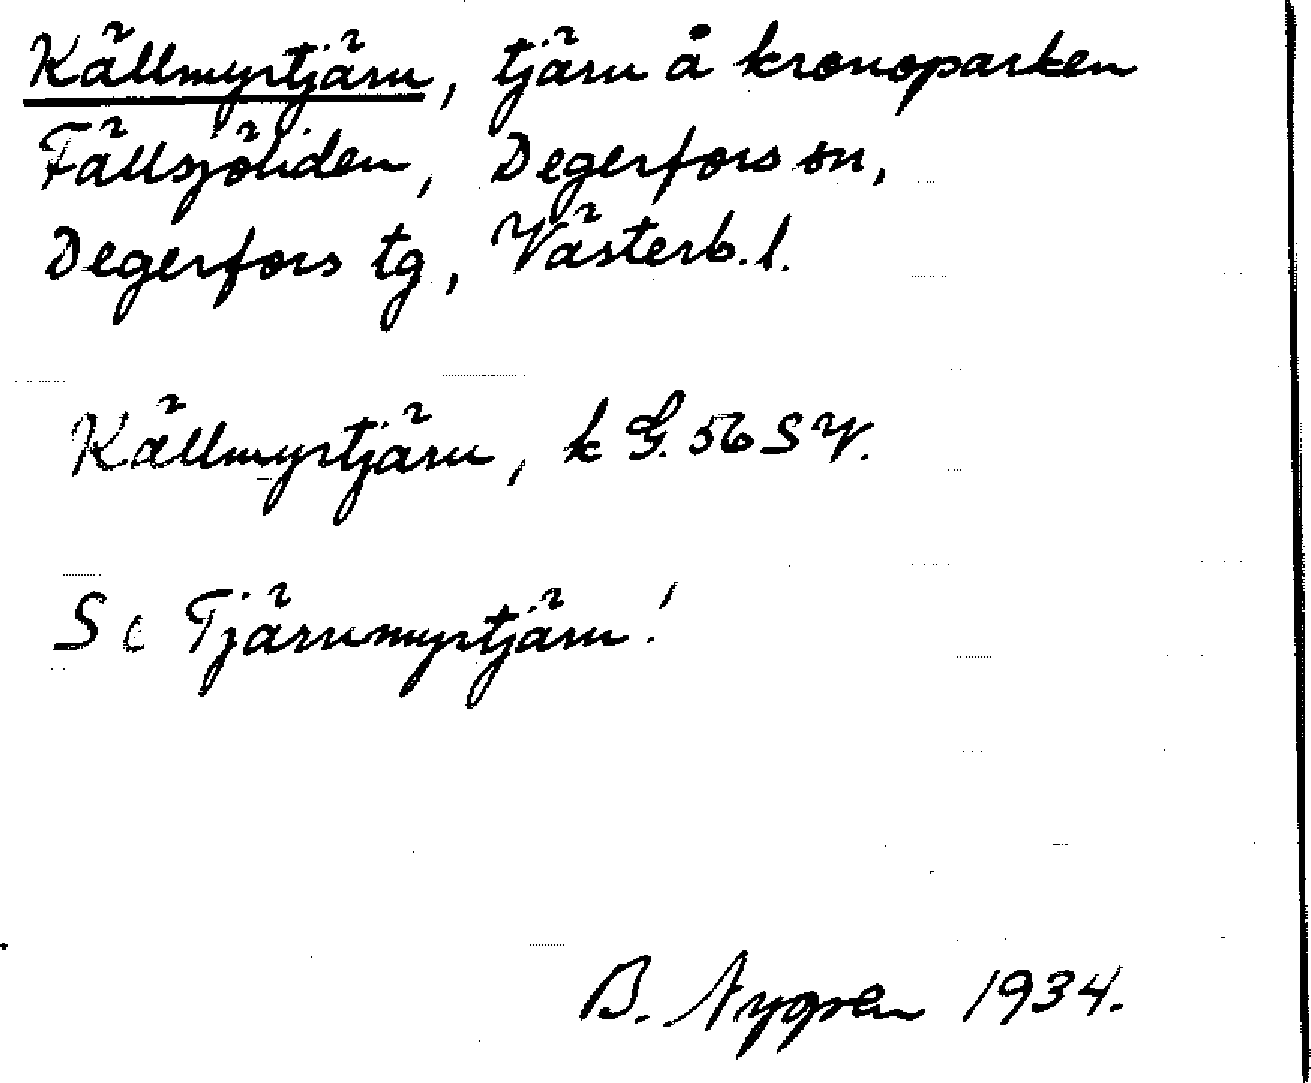 Källmyrtjärn, tjärn å kronoparken
Fällsjöliden, Degerfors sn,
Degerfors tg, Västerb. l.
Källmyrtjärn, k G. 56 S V.
Se Tjärnmyrtjärn!
B. Nygren 1934.